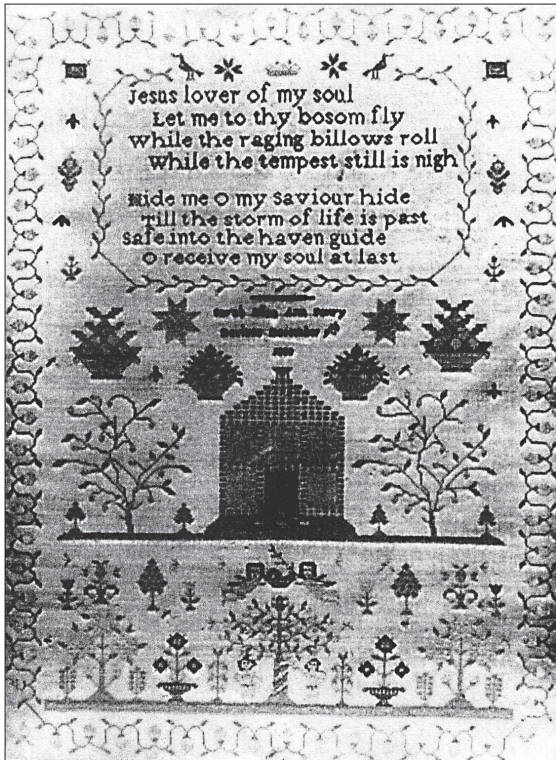 Jesus lover of my soul
Let me to thy bosom fly
While the raging billows roll
While the tempest still is nigh
Hide me O my Saviour hide
Till the storm of life is past
Safe into the haven guide
O receive my soul at last
Ann